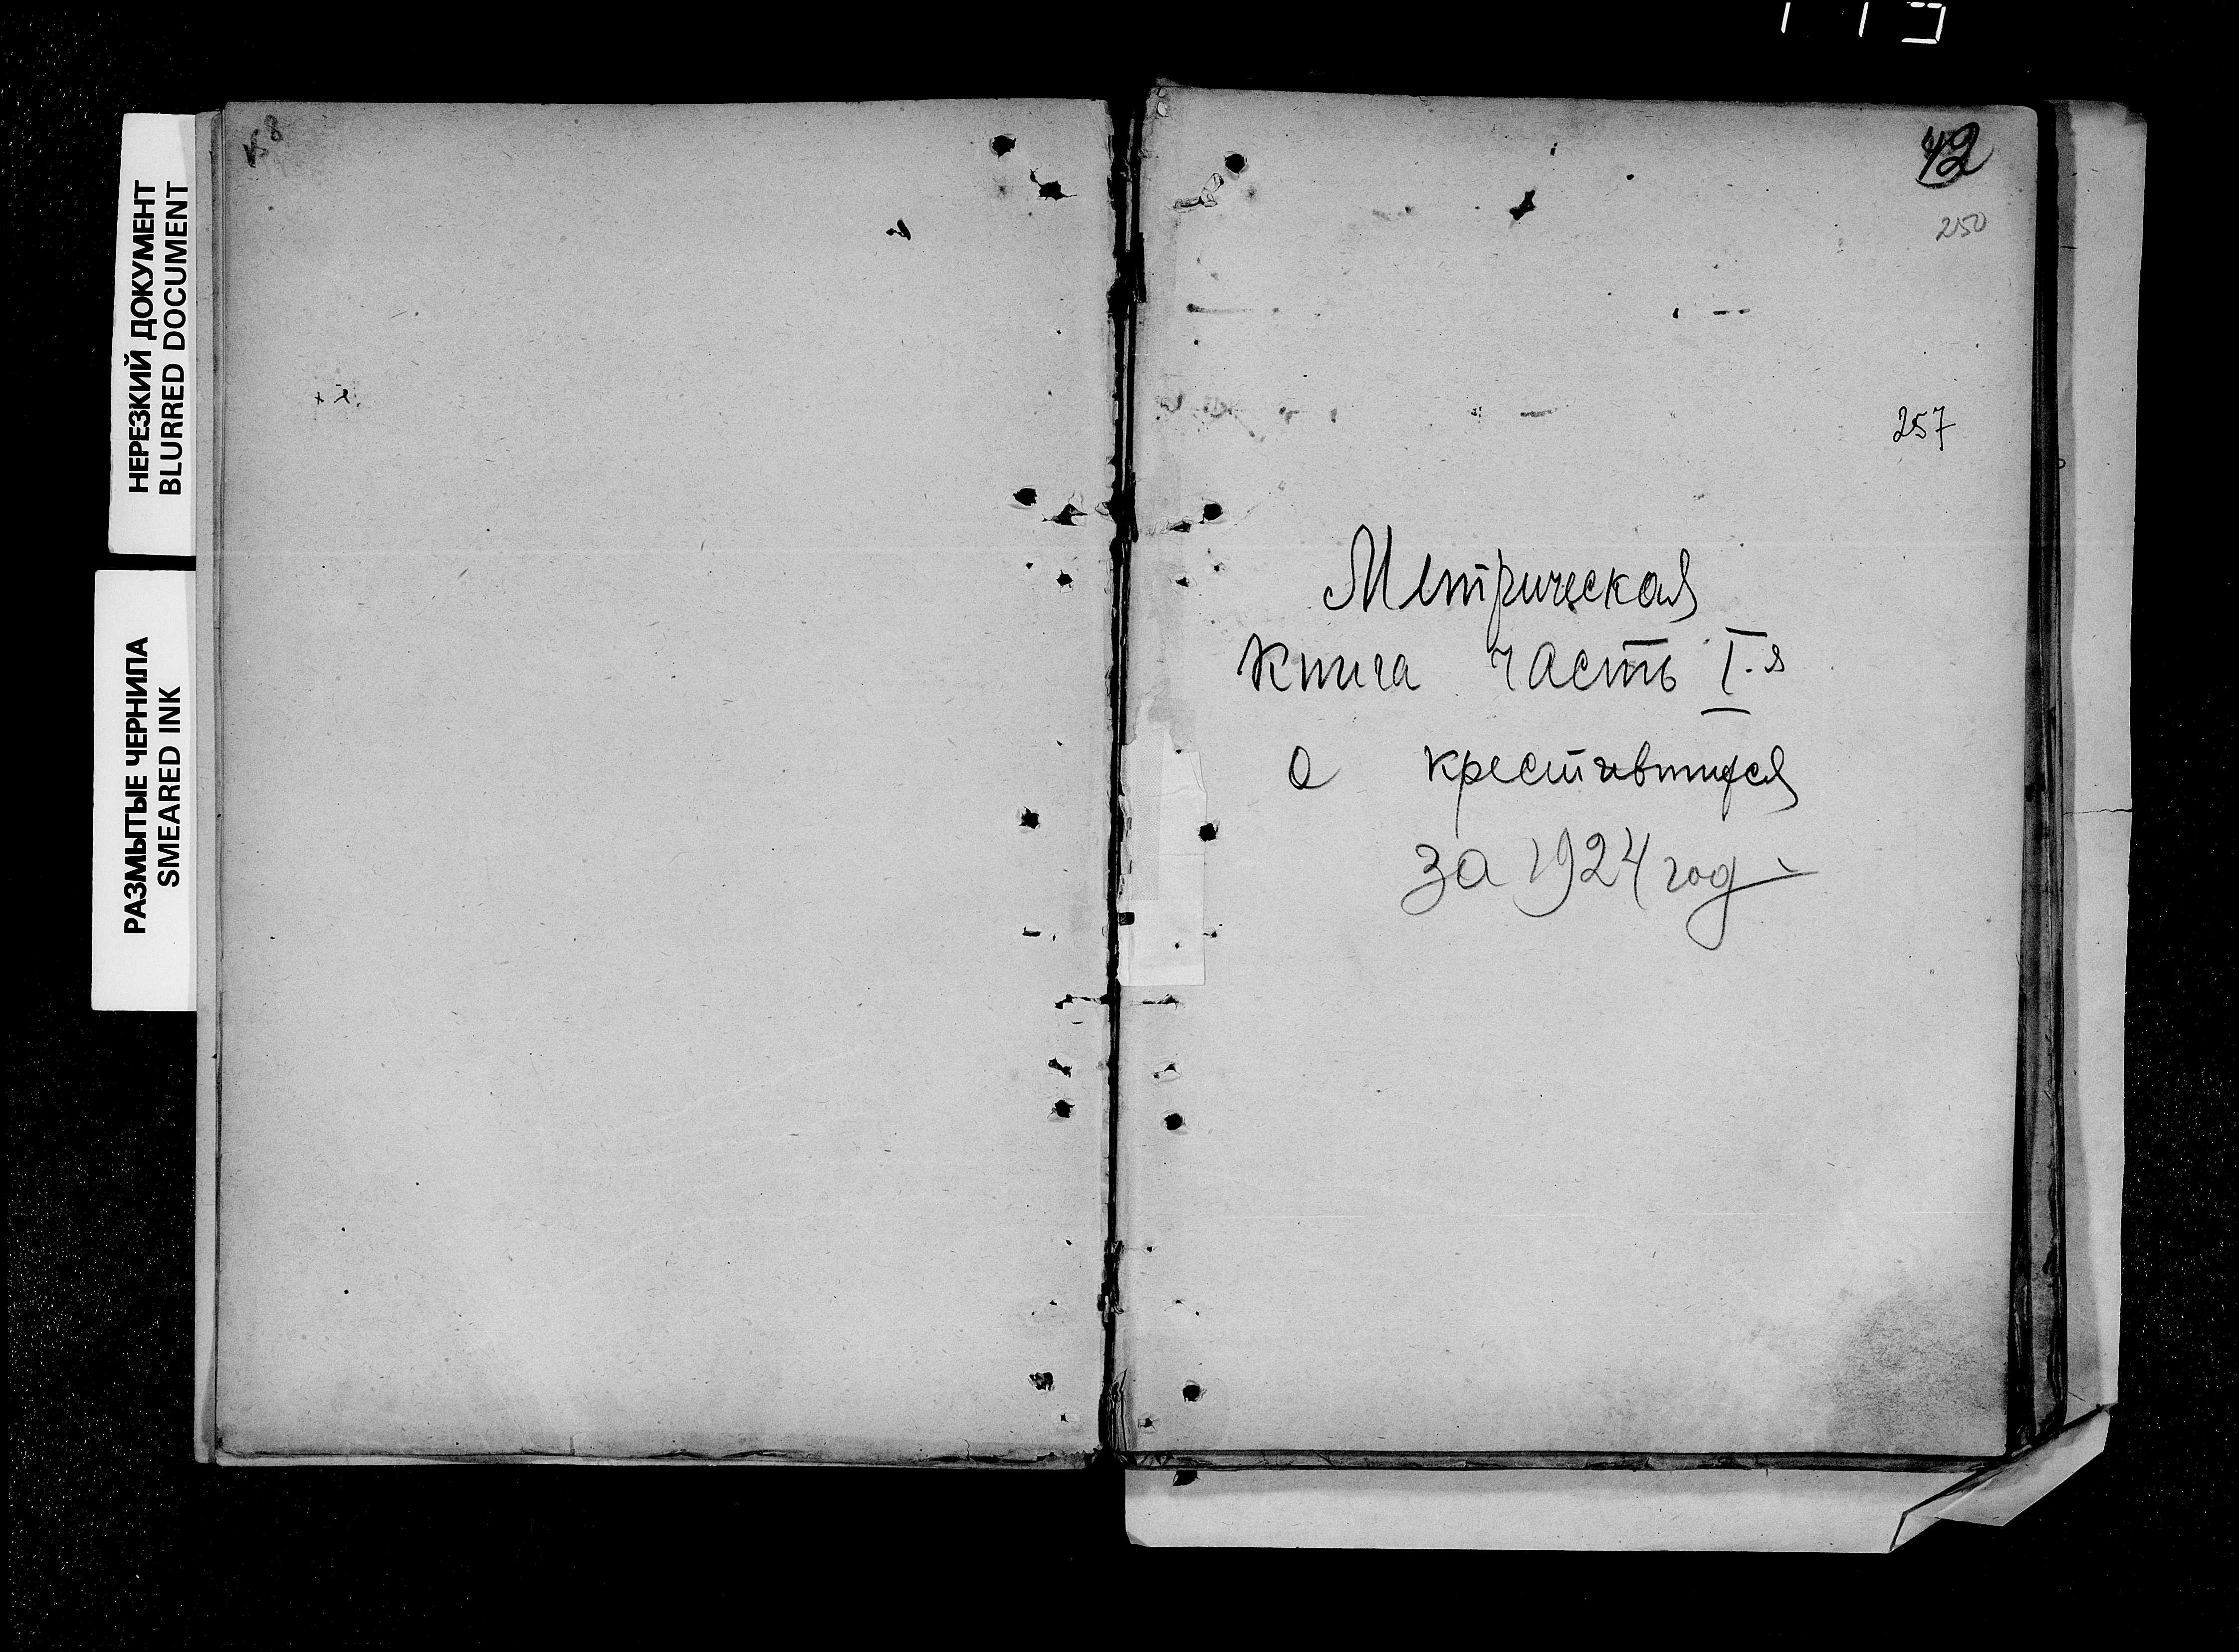 НЕРЕЗКИЙ ДОКУМЕНТ
BLURRED DOCUMENT
РАЗМЫТЫЕ ЧЕРНИЛА
SMEARED INK
42
250
257
Метрическая
книга часть I-я
о крестившихся
за 1924 год